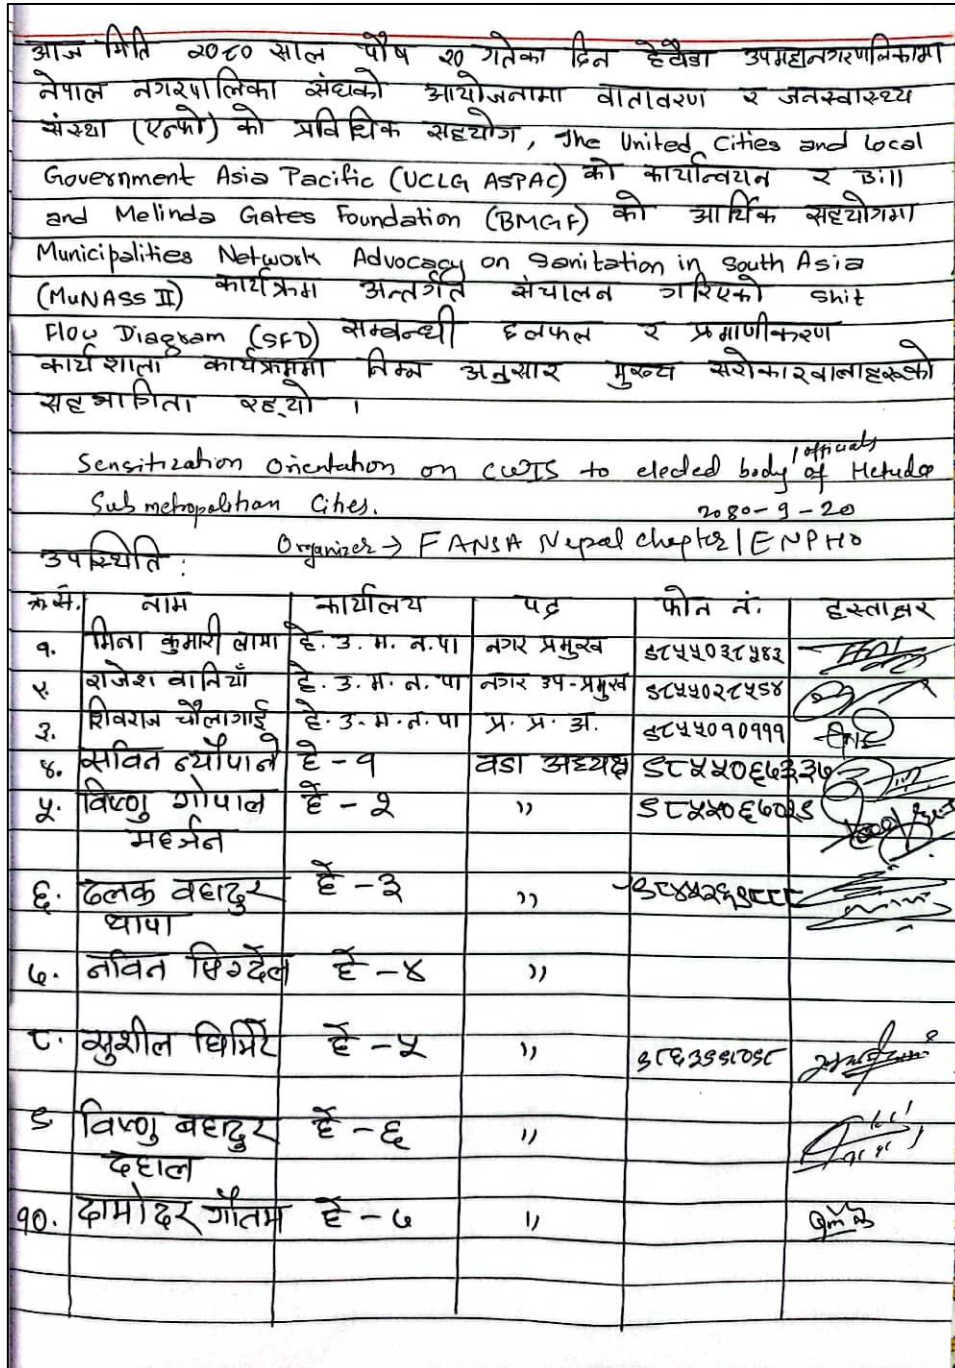 आज मिति २०८० साल पौष २० गतेका दिन हेटौंडा उपमहानगरपालिकामा
नेपाल नगरपालिका संघको आयोजनामा वातावरण र जनस्वास्थ्य
संस्था (एन्फो) को प्रविधिक सहयोग, The United Cities and Local
Government Asia Pacific (UCLG ASPAC) को कार्यान्वयन र Bill
and Melinda Gates Foundation (BMGF) को आर्थिक सहयोगमा
Municipalities Network Advocacy on Sanitation in South Asia
(MuNASS II) कार्यक्रम अन्तर्गत संचालन गरिएको Shit
Flow Diagram (SFD) सम्बन्धी छलफल र प्रमाणीकरण
कार्यशाला कार्यक्रममा निम्न अनुसार मुख्य सरोकारवालाहरूको
सहभागिता रह्यो ।
Sensitization Orientation on CWIS to elected body / officials of Hetuda
Sub metropolitian Cities. 2080-9-20
Organizer → FANSA Nepal Chapter / ENPHO
उपस्थिति :
क्र.सं. नाम कार्यालय पद फोन नं. हस्ताक्षर
१. मिना कुमारी लामा हे. उ. म. न. पा नगर प्रमुख ९८५५०३८५४२
२. राजेश बानियाँ हे. उ. म. न. पा नगर उप-प्रमुख ९८५५०२८५९४
३. शिवराज चौलागाई हे. उ. म. न. पा प्र. प्र. अ. ९८५५०१०१११
४. सविन न्यौपाने हे - १ वडा अध्यक्ष ९८५५०६७३३७
५. विष्णु गोपाल महर्जन हे - २ ,,
६. टलक बहादुर थापा हे - ३ ,,
७. नविन सिग्देल हे - ४ ,,
८. सुशील घिमिरे हे - ५ ,,
९ विष्णु बहादुर दहाल हे - ६ ,,
१०. दामोदर गौतम हे - ७ ,,